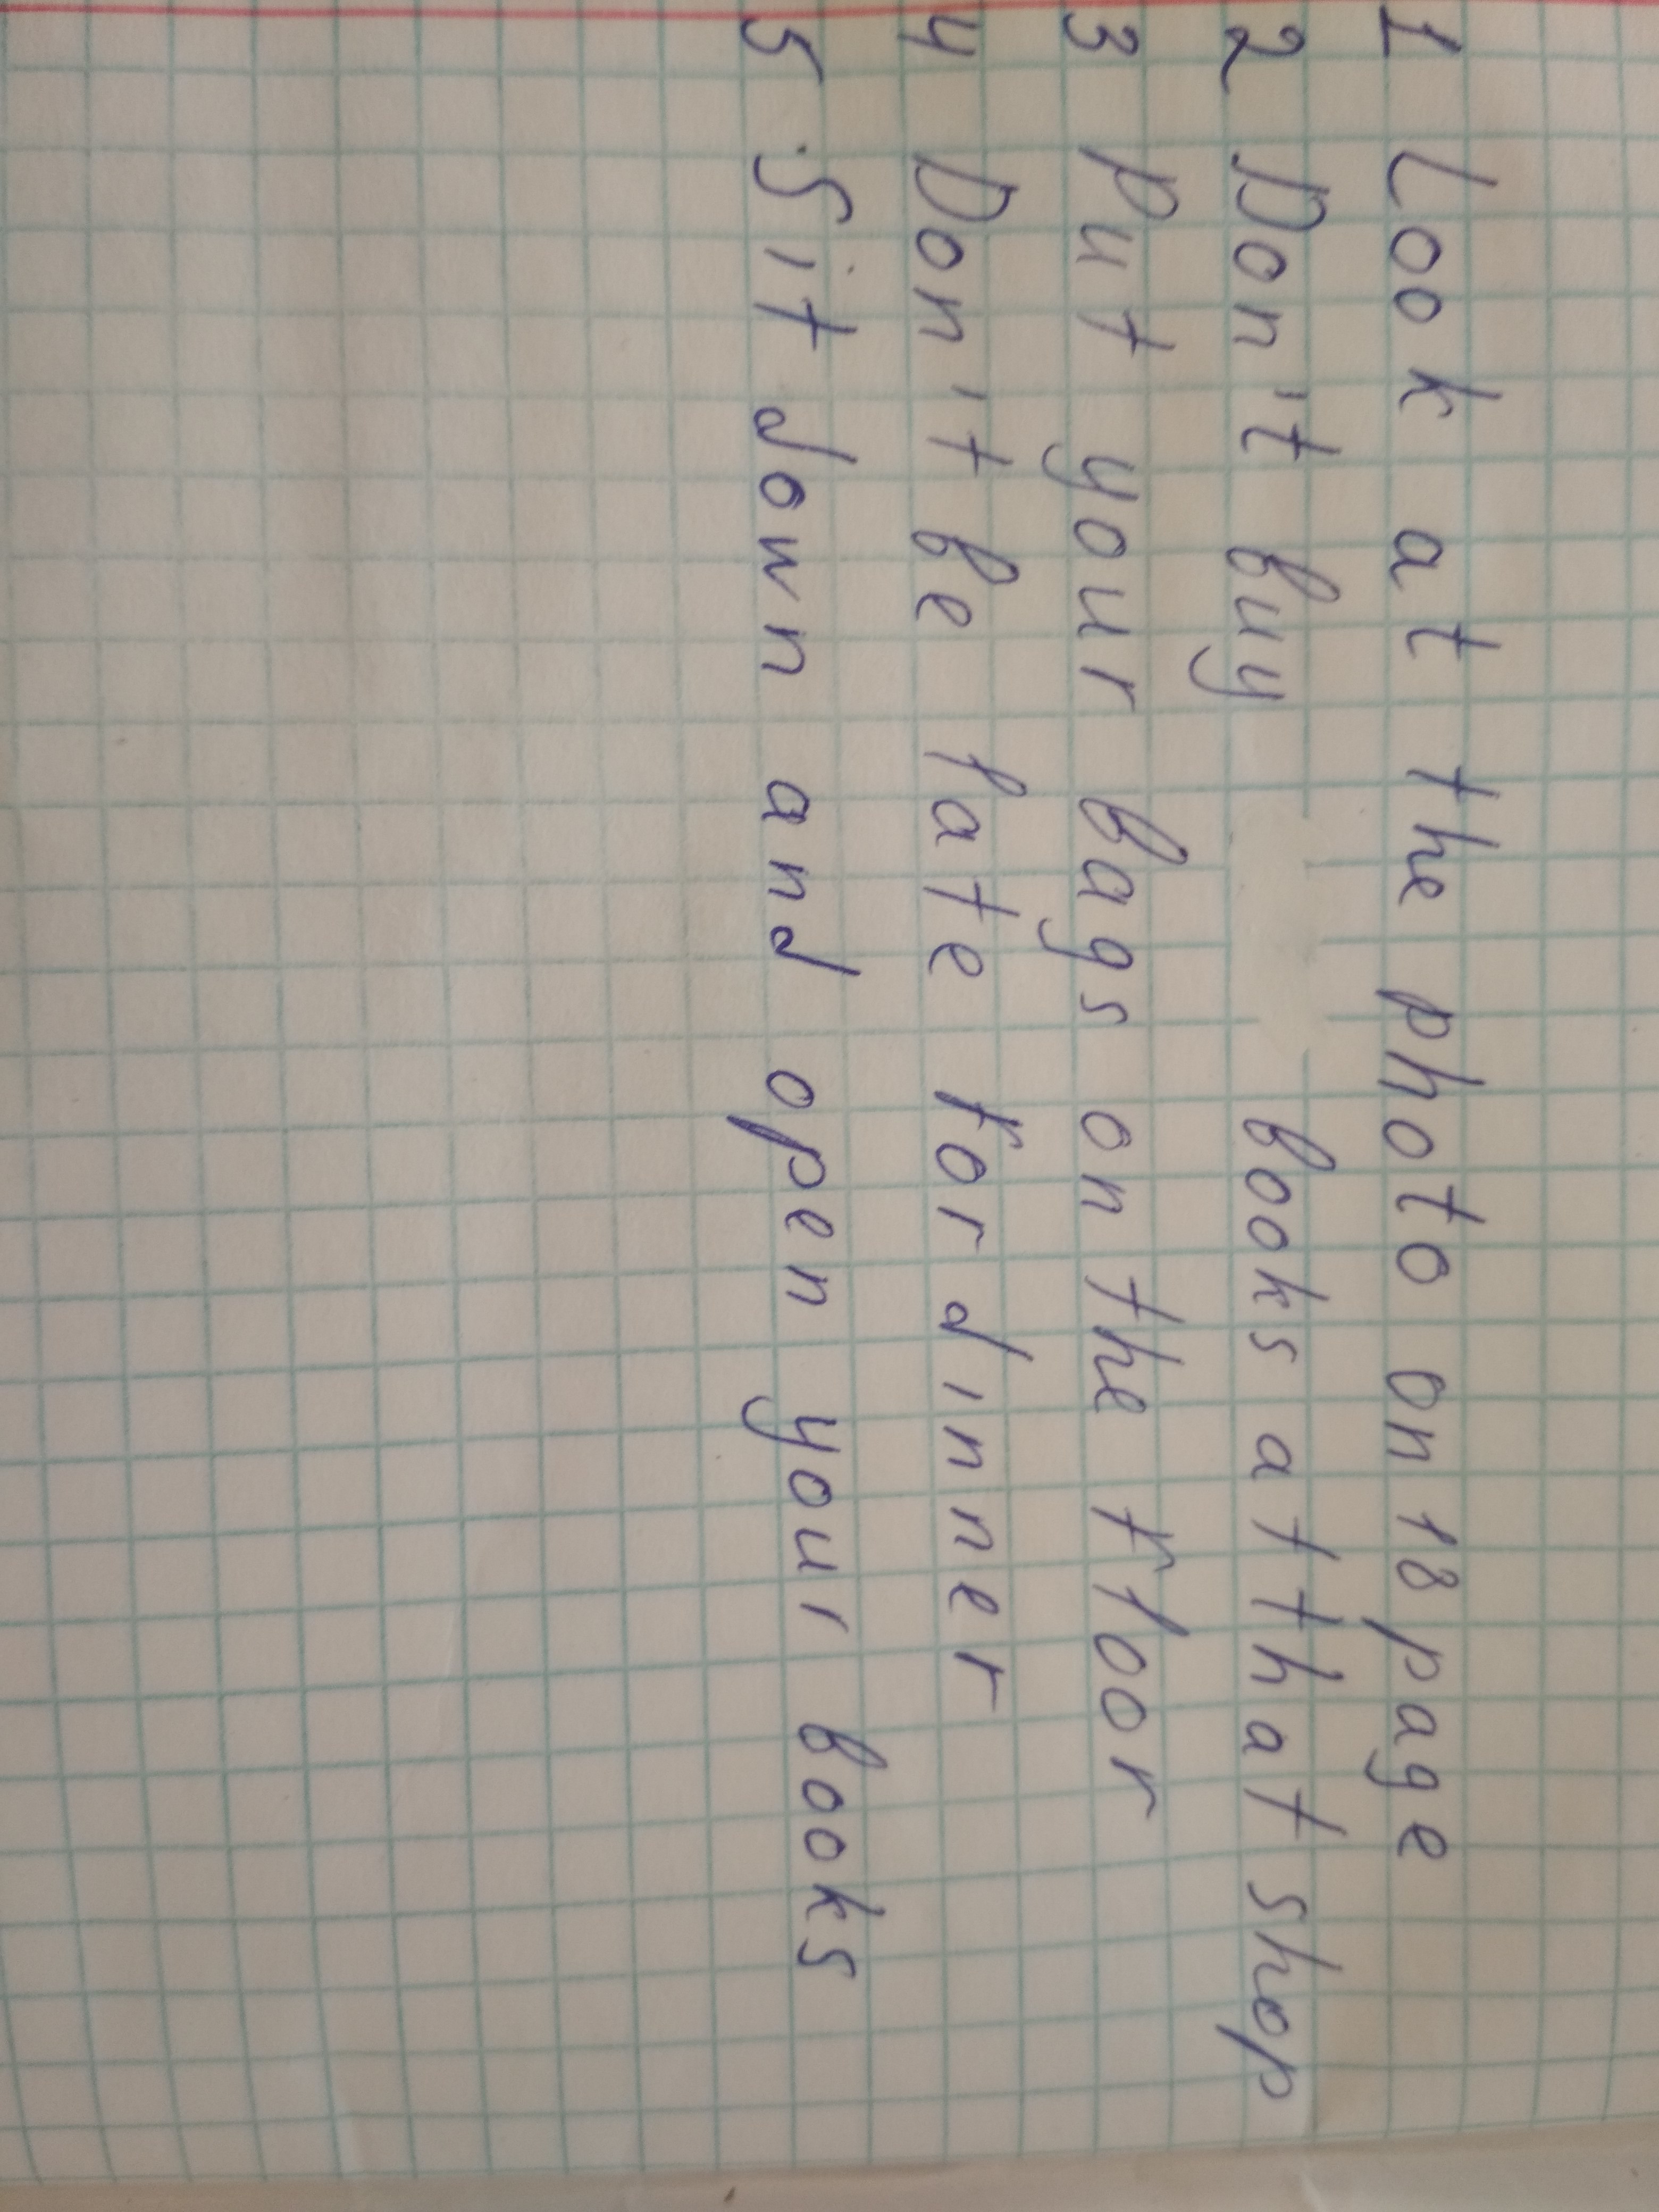 1 Look at the photo on 18 page
2 Don't buy books at that shop
3 Put your bags on the floor
4 Don't be late for dinner
5 Sit down and open your books